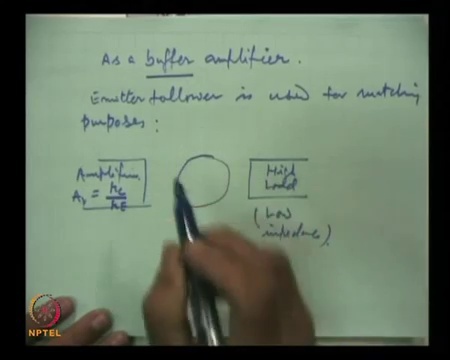 As a buffer amplifier.
Emitter follower is used for matching
purposes:
Amplifier
Av = rc / rE
High
Load
(Low
impedance)
NPTEL